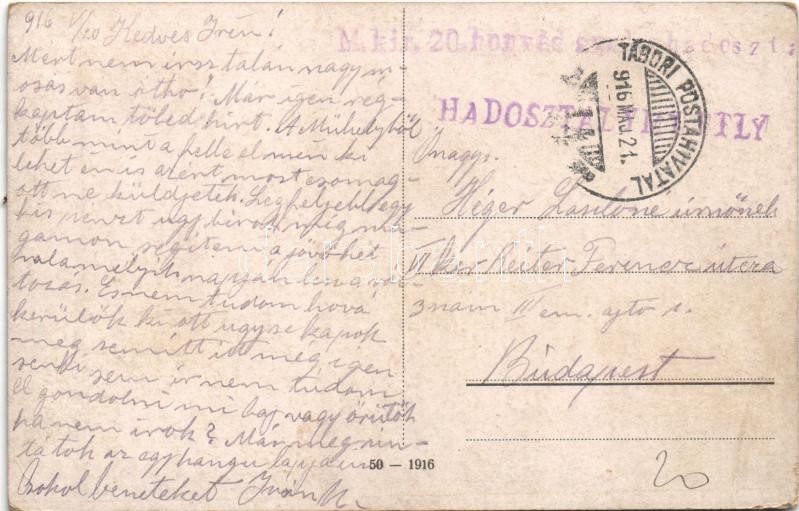 916 V/20 Kedves Irén!
Mert nem írsz talán nagy m
osás van ottho! Már igen rég
kaptam tőled hírt. A Műhelyből
több mint a fele elmén ki
lehet én is azért most csomag-
ott ne küldjetek. Legfeljebb egy
kis pénzt úgy bírok még ma-
gamon segíteni a jövő hét
valamelyik napján
Én nem tudom hová
kerülök ki ott úgyse kapok
meg semitt itt még igen
senki sem ír nem tudom
el gondolni mi baj vagy örültök
ha nem írok? Már meg un-
tátok az egyhangu lapjaim
Csókol beneteket Iván K.
M. kir. 20. honvéd
HADOSZTÁLY
TÁBORI POSTAHIVATAL
916 MÁJ 21.
Önagys.
Héger Lászlóné úrnőnek
VII ker Reiter Ferenc utca
3 szám III em. ajtó 1.
Budapest
50 — 1916
20